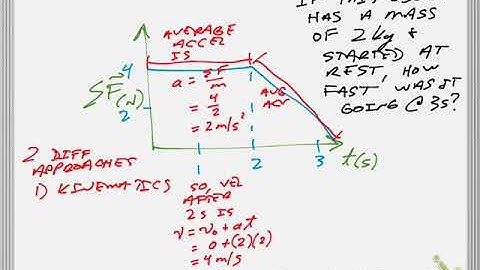 IF THIS
HAS A MASS
OF 2 kg &
STARTED AT
REST, HOW
FAST WAS IT
GOING @ 3s?
AVERAGE
ACCEL
IS
4
ΣF(N)
2
a = ΣF/m
= 4/2
= 2 m/s²
AVG
1
2
3
t(s)
2 DIFF
APPROACHES
1) KINEMATICS
SO, VEL
AFTER
2s IS
v = v₀ + at
= 0 + (2)(2)
= 4 m/s